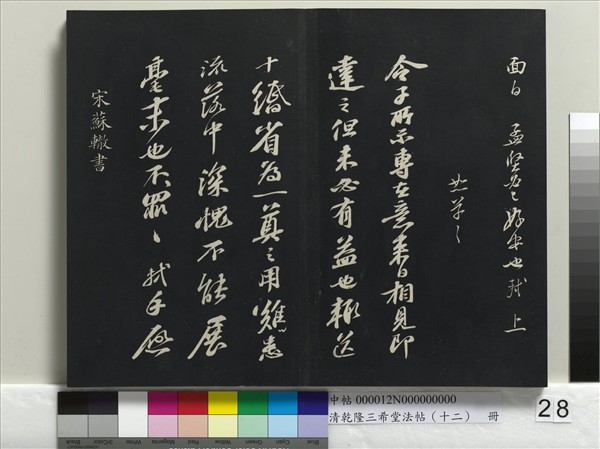 面白 孟堅好也 軾 上
草〻
令子所示專在意來日相見即
達之但未必有益也輒送
十縑省為一奠之用雖
流落中深愧不能展
毫末也不罪〻軾手啟
宋蘇轍書
中帖 000012N000000000
清乾隆三希堂法帖(十二) 冊
28
Black
3/Color
White
Magenta
Red
Yellow
Green
Cyan
Blue